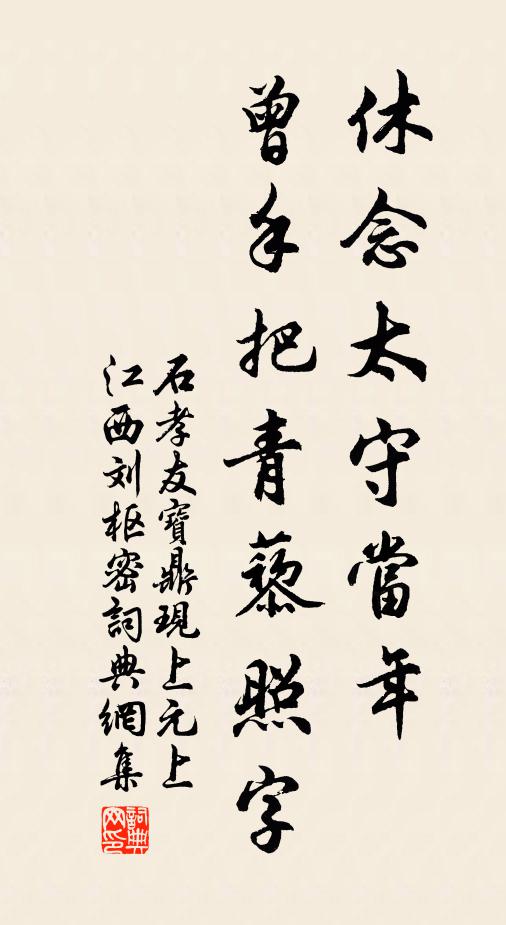 休念太守當年
曾手把青藜照字
石孝友寶鼎現上元上
江西刘枢密詞典網集
詞典
网印